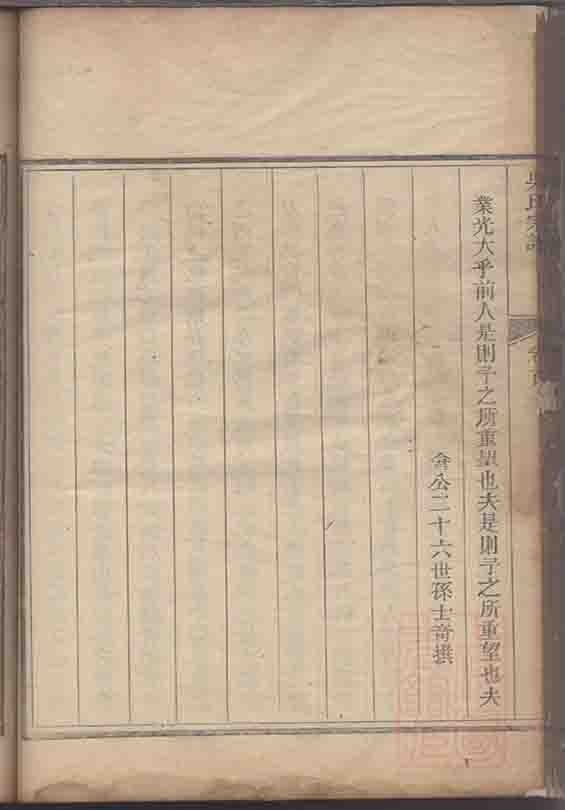 吳氏宗譜
卷首
業光大乎前人是則予之所重望也夫是則予之所重望也夫
會公二十六世孫士奇撰